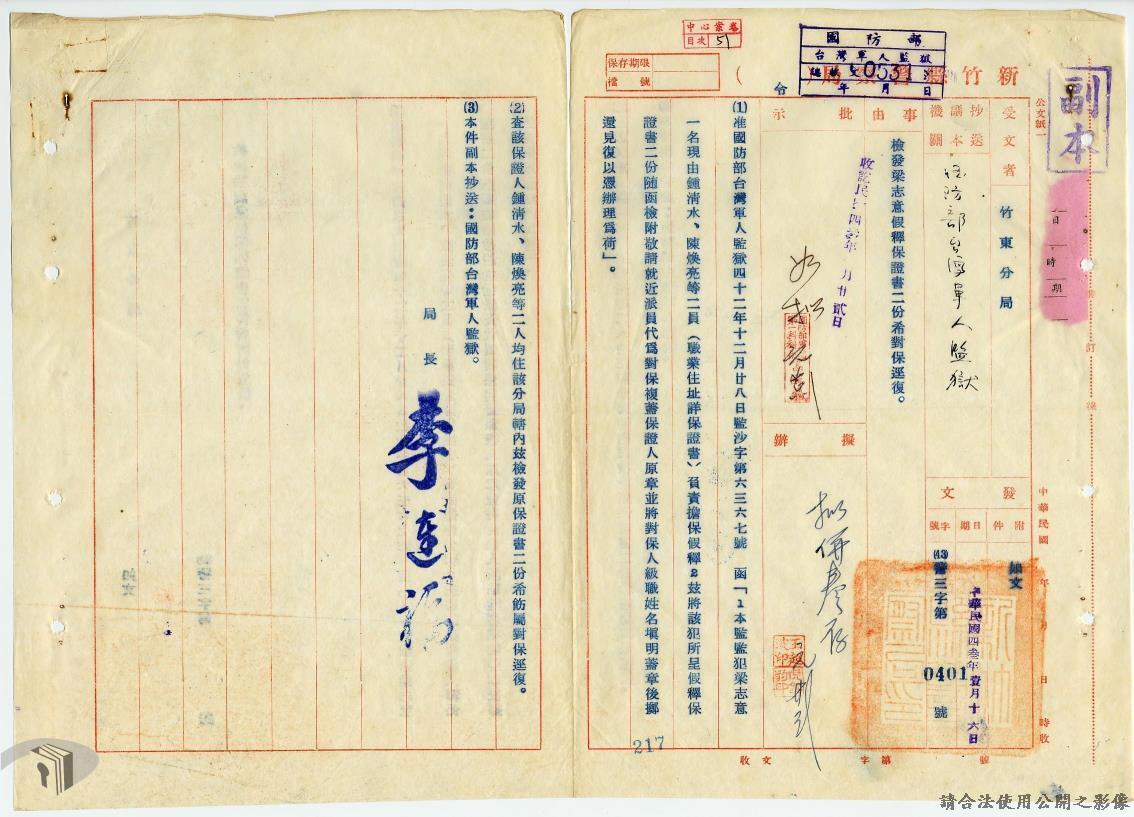 副本
新竹縣警察局
令
國防部
台灣軍人監獄
0531
年月日
中心業卷
目次 51
保存期限
檔號
公文紙一
受文者 竹東分局
抄送
議本
機關
國防部台灣軍人監獄
事由
檢發梁志意假釋保證書二份希對保逕復。
批示
如擬
擬辦
拟併卷存
發文
附件 如文
日期 中華民國四叁年壹月十六日
字號 (43)警三字第 0401 號
中華民國 年 月 日 時收
日 時 期
訂線
(1)准國防部台灣軍人監獄四十二年十二月廿八日監沙字第六三六七號 函「1本監監犯梁志意
一名現由鍾清水、陳煥亮等二員(職業住址詳保證書)負責擔保假釋2茲將該犯所呈假釋保
證書二份隨函檢附敬請就近派員代為對保複蓋保證人原章並將對保人級職姓名填明蓋章後擲
還見復以憑辦理為荷」。
收文 字第 號
217
(2)查該保證人鍾清水、陳煥亮等二人均住該分局轄內茲檢發原保證書二份希飭屬對保逕復。
(3)本件副本抄送:國防部台灣軍人監獄。
局長 李連福
請合法使用公開之影像